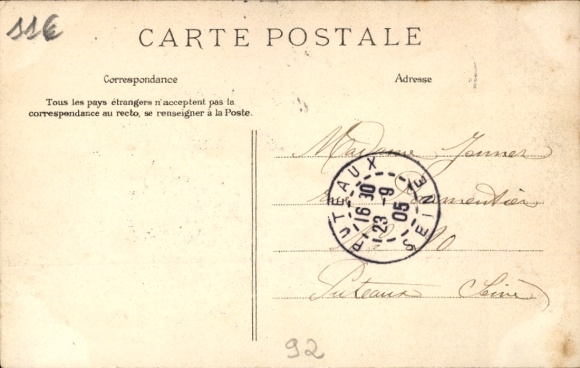 11€
CARTE POSTALE
Correspondance
Adresse
Tous les pays étrangers n'acceptent pas la
correspondance au recto, se renseigner à la Poste.
Madame
Parmentier
10
Puteaux Seine
PUTEAUX
16 30
23 - 9
05
SEINE
92